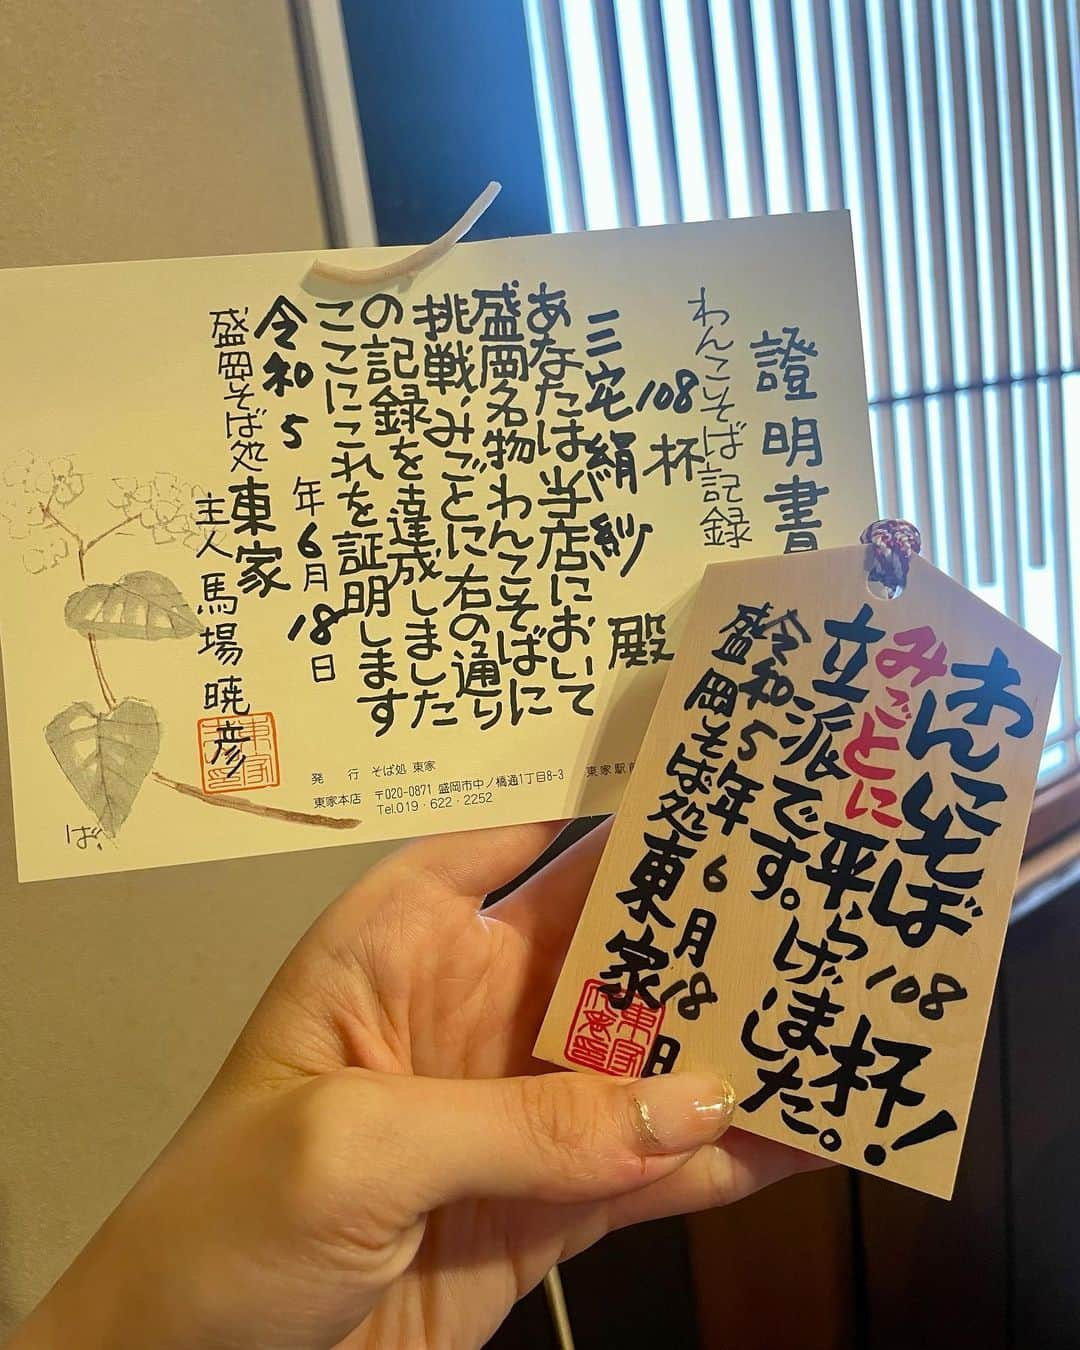 證明書
わんこそば記録
108杯
三宅絹紗 殿
あなたは当店において
盛岡名物わんこそばに
挑戦、みごとに右の通り
の記録を達成しました
ここにこれを証明します
令和5年6月18日
盛岡そば処 東家
主人 馬場暁彦
ば、
発 行 そば処 東家
東家本店 〒020-0871 盛岡市中ノ橋通1丁目8-3
Tel.019・622・2252
東家駅前
わんこそば108杯!
みごとに平らげました。
立派です。
令和5年6月18日
盛岡そば処東家